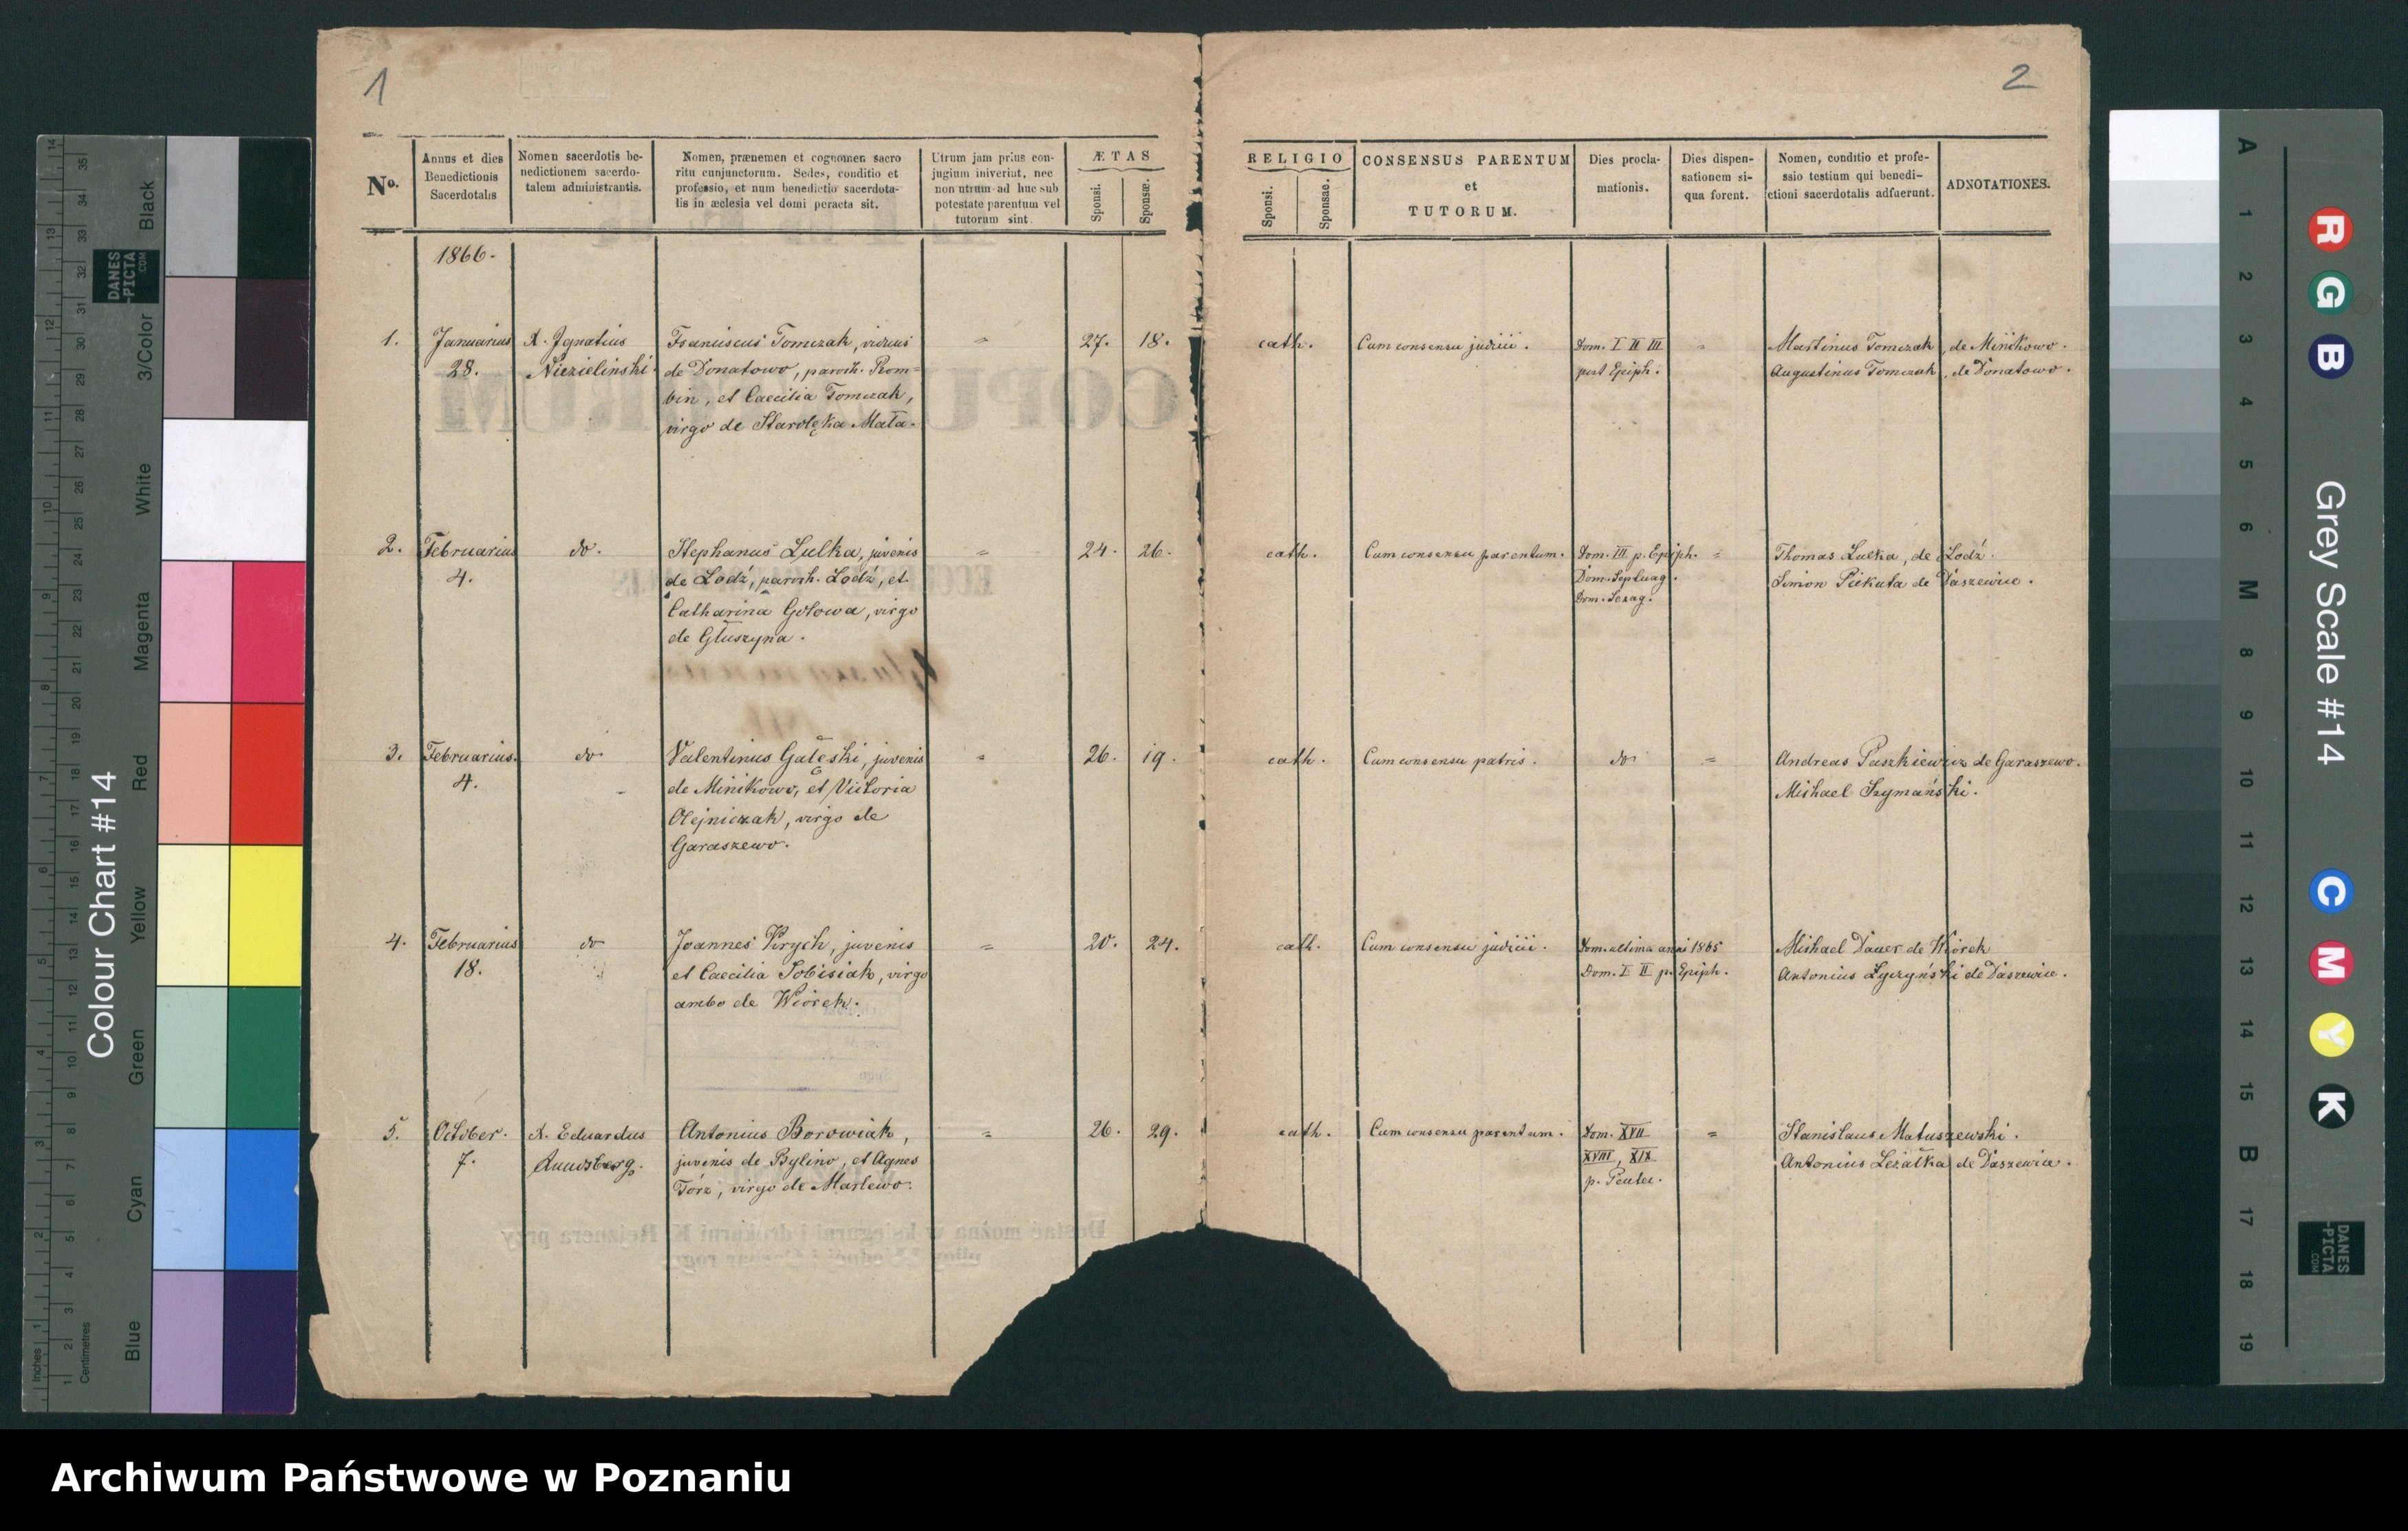 1
2
No.
Annus et dies
Benedictionis
Sacerdotalis
Nomen sacerdotis be-
nedictionem sacerdo-
talem administrantis.
Nomen, prænemen et cognomen sacro
ritu cunjunctorum. Sedes, conditio et
professio, et num benedictio sacerdota-
lis in æclesia vel domi peracta sit.
Utrum jam prius con-
jugium iniverint, nec
non utrum ad huc sub
potestate parentum vel
tutorum sint.
ÆTAS
Sponsi.
Sponsæ.
RELIGIO
Sponsi.
Sponsae.
CONSENSUS PARENTUM
et
TUTORUM.
Dies procla-
mationis.
Dies dispen-
sationem si-
qua forent.
Nomen, conditio et profe-
ssio testium qui benedi-
ctioni sacerdotalis adfuerunt.
ADNOTATIONES.
1866.
1.
Januarius
28.
X. Ignatius
Niezielinski.
Franciscus Tomczak, viduus
de Donatowo, paroch. Rom-
bin, et Caecilia Tomczak,
virgo de Starołęka Mała.
27.
18.
cath.
Cum consensu judicii.
Dom. I II III
post Epiph.
Martinus Tomczak, de Minikowo.
Augustinus Tomczak, de Donatowo.
2.
Februarius
4.
do.
Stephanus Lulka, juvenis
de Lodź, paroch. Lodź, et
Catharina Gołowa, virgo
de Głuszyna.
24.
26.
cath.
Cum consensu parentum.
Dom. III p. Epiph.
Dom. Septuag.
Dom. Sexag.
Thomas Lulka, de Lodź.
Simon Piekuta de Daszewice.
3.
Februarius.
4.
do
Valentinus Gałęski, juvenis
de Minikowo, et Victoria
Olejniczak, virgo de
Garaszewo.
26.
19.
cath.
Cum consensu patris.
do
Andreas Paszkiewicz de Garaszewo.
Michael Szymański.
4.
Februarius
18.
do
Joannes Krych, juvenis
et Caecilia Sobisiak, virgo
ambo de Wiórek.
20.
24.
cath.
Cum consensu judicii.
Dom. ultima anni 1865
Dom. I II p. Epiph.
Michael Dauer de Wiórek
Antonius Łyczyński de Daszewice.
5.
October.
7.
X. Eduardus
Antonius Borowiak,
juvenis de Bylino, et Agnes
Torz, virgo de Marlewo.
26.
29.
cath.
Cum consensu parentum.
Dom. XVII
XVIII, XIX
p. Pentec.
Stanislaus Matuszewski.
Antonius Leżałka de Daszewice.
Colour Chart #14
Blue
Cyan
Green
Yellow
Red
Magenta
White
3/Color
Black
Inches
Centimetres
DANES
-PICTA
.COM
Grey Scale #14
R
G
B
C
M
Y
K
A
1
2
3
4
5
6
M
8
9
10
11
12
13
14
15
B
17
18
19
DANES
-PICTA
.COM
Archiwum Państwowe w Poznaniu